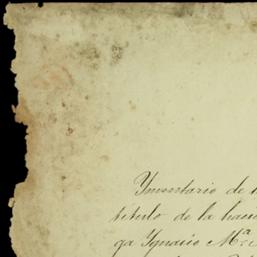 Ynventario de l
titulo de la haci
ga Ygnacio M.ª